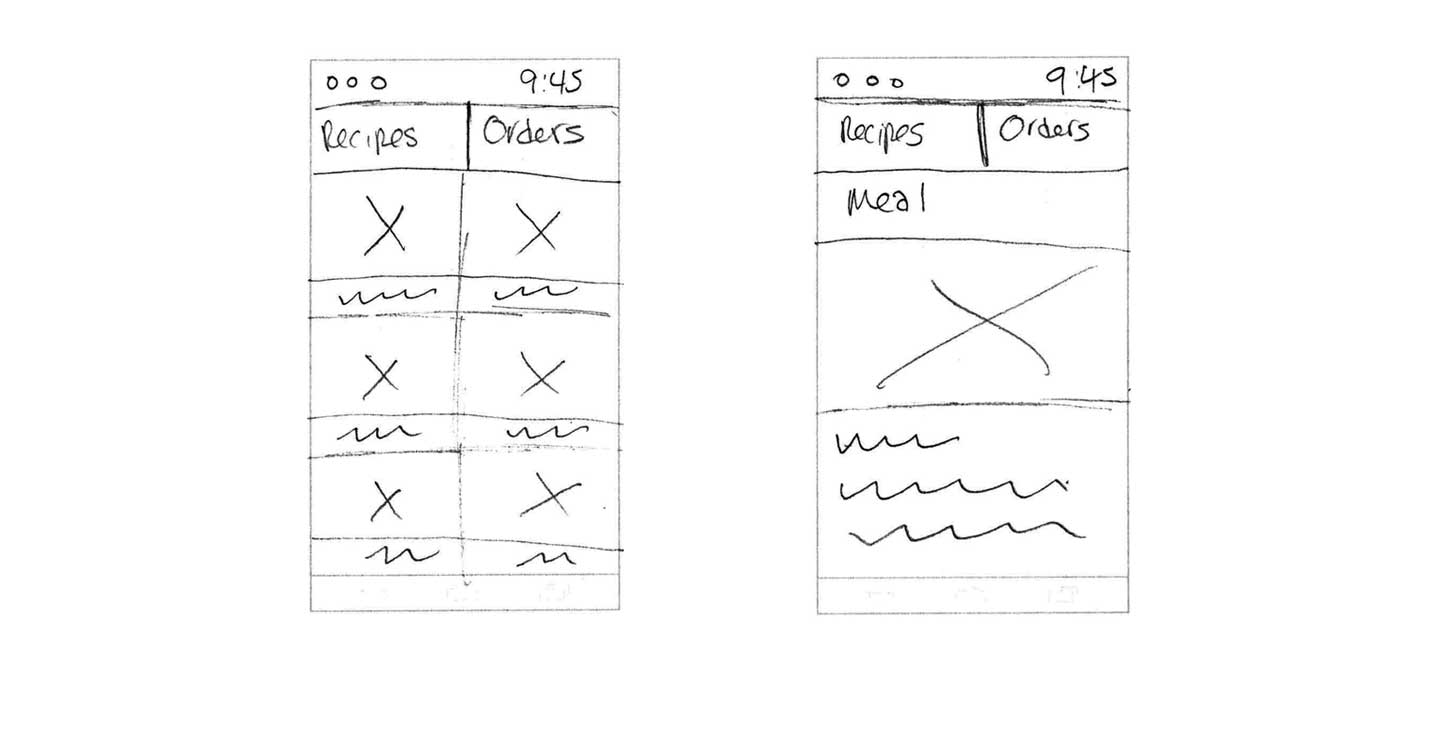 ooo 9:45
Recipes Orders
ooo 9:45
Recipes Orders
Meal